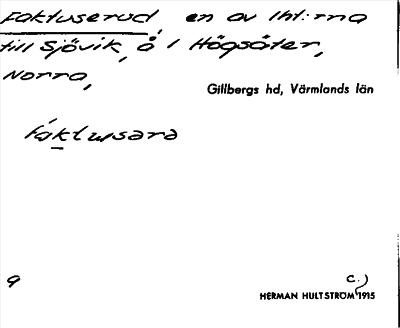 Faktuserud, en av lht:rna
till Sjövik, å i Högsäter,
Norra,
Gillbergs hd, Värmlands län
faktusara
9
c.)
HERMAN HULTSTRÖM 1915